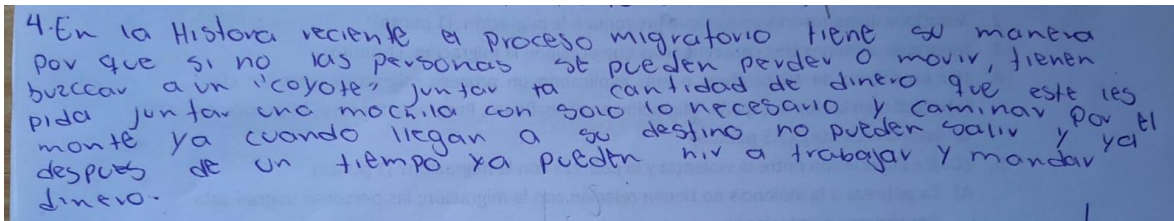 4. En la Histora reciente, el proceso migratorio tiene su manera
por que si no las personas se pueden perder o morir, tienen
buzccar a un "coyote" juntar ta cantidad de dinero que este les
pida juntar una mochila con solo lo necesario y caminar por el
monte ya cuando llegan a su destino no pueden salir y ya
despues de un tiempo ya pueden hir a trabajar y mandar
dinero.